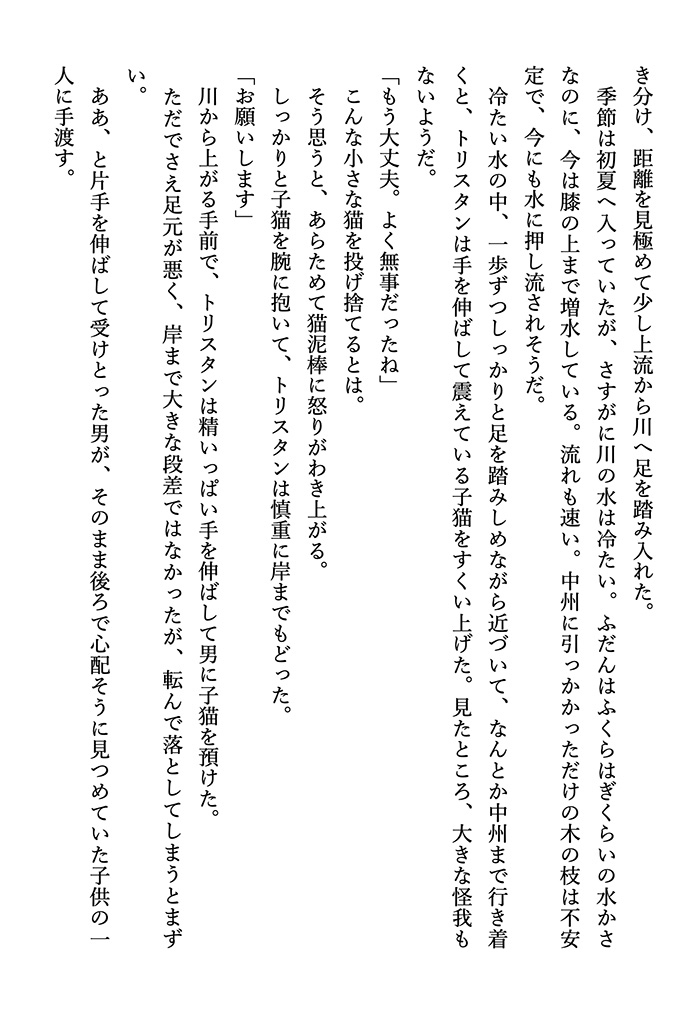 き分け、距離を見極めて少し上流から川へ足を踏み入れた。
　季節は初夏へ入っていたが、さすがに川の水は冷たい。ふだんはふくらはぎくらいの水かさ
なのに、今は膝の上まで増水している。流れも速い。中州に引っかかっただけの木の枝は不安
定で、今にも水に押し流されそうだ。
　冷たい水の中、一歩ずつしっかりと足を踏みしめながら近づいて、なんとか中州まで行き着
くと、トリスタンは手を伸ばして震えている子猫をすくい上げた。見たところ、大きな怪我も
ないようだ。
「もう大丈夫。よく無事だったね」
　こんな小さな猫を投げ捨てるとは。
　そう思うと、あらためて猫泥棒に怒りがわき上がる。
　しっかりと子猫を腕に抱いて、トリスタンは慎重に岸までもどった。
「お願いします」
　川から上がる手前で、トリスタンは精いっぱい手を伸ばして男に子猫を預けた。
　ただでさえ足元が悪く、岸まで大きな段差ではなかったが、転んで落としてしまうとまず
い。
　ああ、と片手を伸ばして受けとった男が、そのまま後ろで心配そうに見つめていた子供の一
人に手渡す。